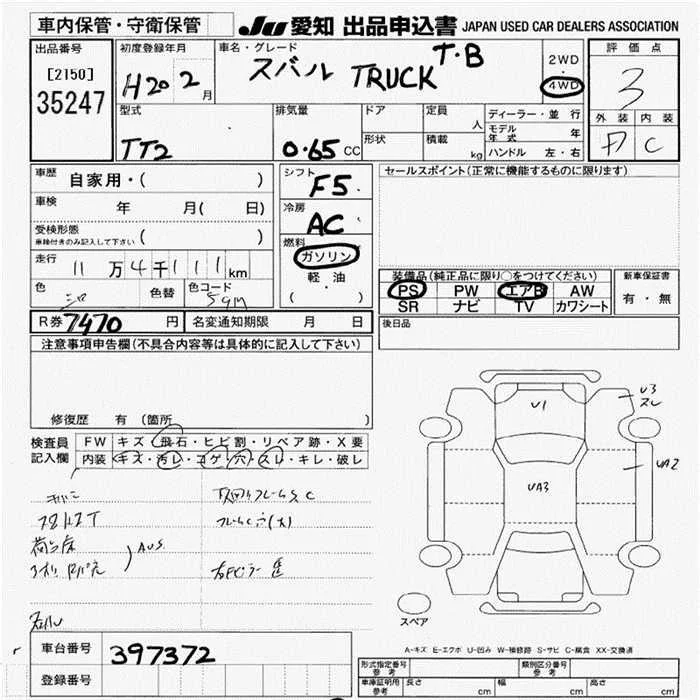 車内保管・守衛保管
JU 愛知 出品申込書 JAPAN USED CAR DEALERS ASSOCIATION
出品番号
[2150]
35247
初度登録年月
H20 2月
車名・グレード
スバル TRUCK T・B
2WD
・
4WD
評価点
3
外装 内装
C
型式
TT2
排気量
0.65 CC
ドア
形状
定員
人
積載
kg
ディーラー・並行
モデル年式 年
ハンドル 左・右
車歴
自家用・( )
車検
年 月( 日)
受検形態
車検付きのみ記入して下さい ( )
走行
11万4千111km
色
色替
色コード
シフト
F5
冷房
AC
燃料
ガソリン
軽・油
( )
セールスポイント(正常に機能するものに限ります)
装備品(純正品に限り○をつけてください)
PS PW エアB AW
SR ナビ TV カワシート
新車保証書
有・無
R券 7470 円
名変通知期限 月 日
後日品
注意事項申告欄(不具合内容等は具体的に記入して下さい)
修復歴 有 (箇所 )
検査員記入欄
FW キズ・飛石・ヒビ割・リペア跡・X要
内装 キズ・汚レ・コゲ・穴・スレ・キレ・破レ
荷台床
AUS
U1
U3
スレ
UA2
UA3
スペア
A-キズ E-エクボ U-凹み W-補修跡 S-サビ C-腐食 XX-交換済
車台番号
397372
登録番号
形式指定番号
参考
類別区分番号
参考
車庫証明用
参考
長さ cm
幅 cm
高さ cm